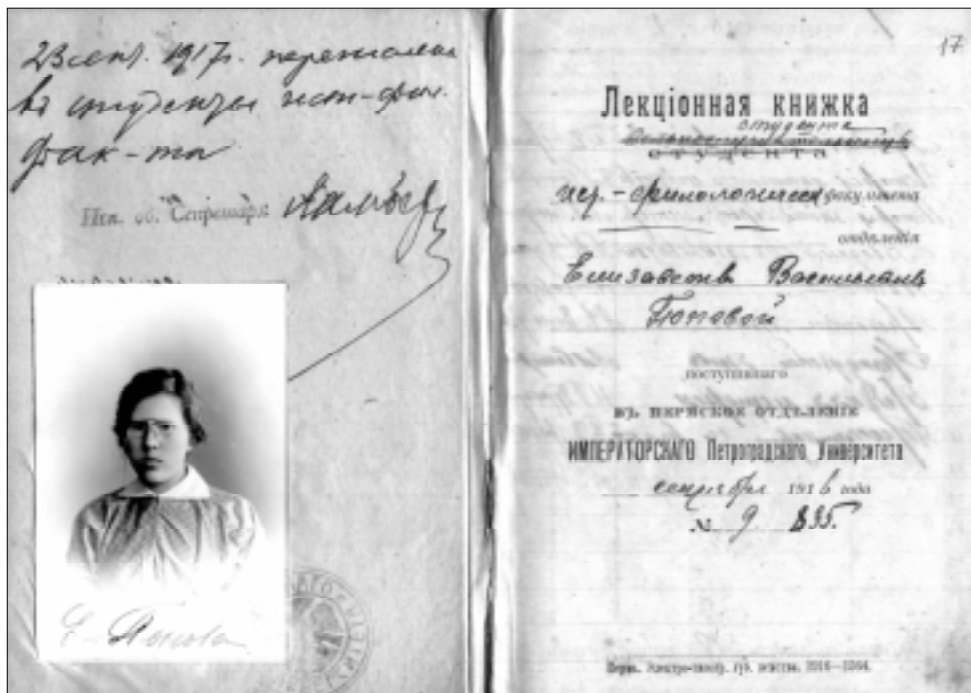 23 сент. 1917 г. перечислена
въ студенты ист-фил.
фак-та
Исп. об. Секретаря
Е. Попова
17
Лекціонная книжка
студента
студента
ист.-филологическ факультета
отдѣленія
Елизаветѣ Васильевнѣ
Поповой
поступившаго
въ Пермское отдѣленіе
ИМПЕРАТОРСКАГО Петроградскаго Университета
сентября 1916 года
№ 9 835.
Перм. Электро-типогр. губ. земства. 1916—